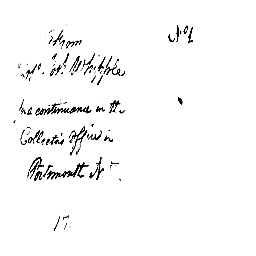 From
No 1
Capt. Jos. Whipple
his continuance in the
Collector's office in
Portsmouth N
17